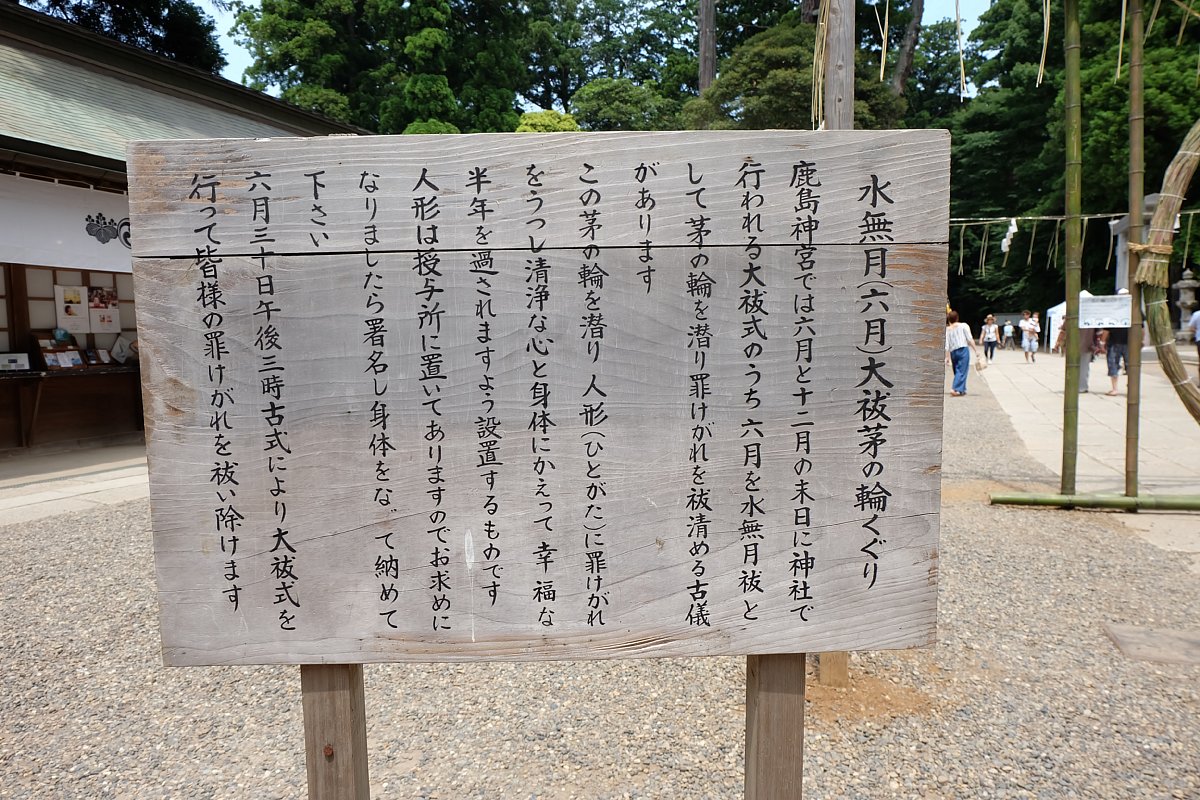 水無月(六月)大祓茅の輪くぐり
鹿島神宮では六月と十二月の末日に神社で
行われる大祓式のうち六月を水無月祓と
して茅の輪を潜り罪けがれを祓清める古儀
があります
この茅の輪を潜り人形(ひとがた)に罪けがれ
をうつし清浄な心と身体にかえって幸福な
半年を過されますよう設置するものです
人形は授与所に置いてありますのでお求めに
なりましたら署名し身体をなでて納めて
下さい
六月三十日午後三時古式により大祓式を
行って皆様の罪けがれを祓い除けます